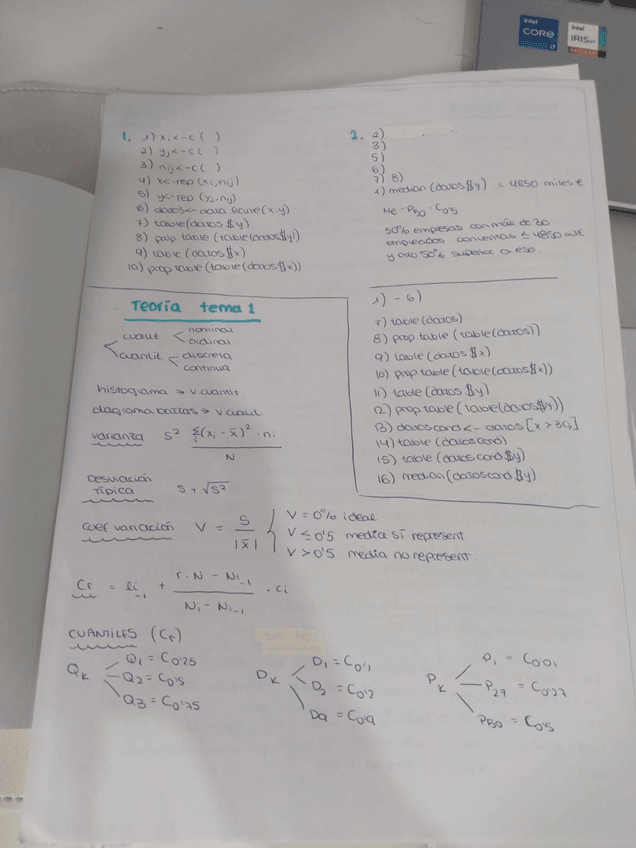 intel
CORE
i7
intel
iRIS xe
1. 1) xi <- c( )
2) yj <- c( )
3) nij <- c( )
4) x <- rep (xi, nij)
5) y <- rep (yj, nij)
6) datos <- data.frame (x,y)
7) table (datos $ y)
8) prop. table (table (datos $ y))
9) table (datos $ x)
10) prop table (table (datos $ x))
2. 2)
3)
5)
6)
7) 8)
1) median (datos $ y) = 4850 miles €
Me = P50 = C0'5
50% empresas con más de 30
empleados con ventas ≤ 4850 mil €
y otro 50% superior a eso.
1) - 6)
7) table (datos)
8) prop table (table (datos))
9) table (datos $ x)
10) prop table (table (datos $ x))
11) table (datos $ y)
12) prop. table (table (datos $ y))
13) datoscond <- datos [x > 30,]
14) table (datoscond)
15) table (datoscond $ y)
16) median (datoscond $ y)
Teoría tema 1
cualit < nominal
ordinal
cuantit < discreta
continua
histograma → v. cuantit.
diagrama barras → v cualit
varianza S² Σ(xi - x̄)² · ni
N
Desviación
típica S + √S²
Coef variación V = S
|x̄|
V = 0% ideal
V ≤ 0'5 media sí represent
V > 0'5 media no represent.
Cr = li-1 + r · N - Ni-1 · ci
Ni - Ni-1
CUANTILES (Cr)
QK
Q1 = C0'25
Q2 = C0'5
Q3 = C0'75
DK
D1 = C0'1
D2 = C0'2
D9 = C0'9
PK
P1 = C0'01
P27 = C0'27
P50 = C0'5